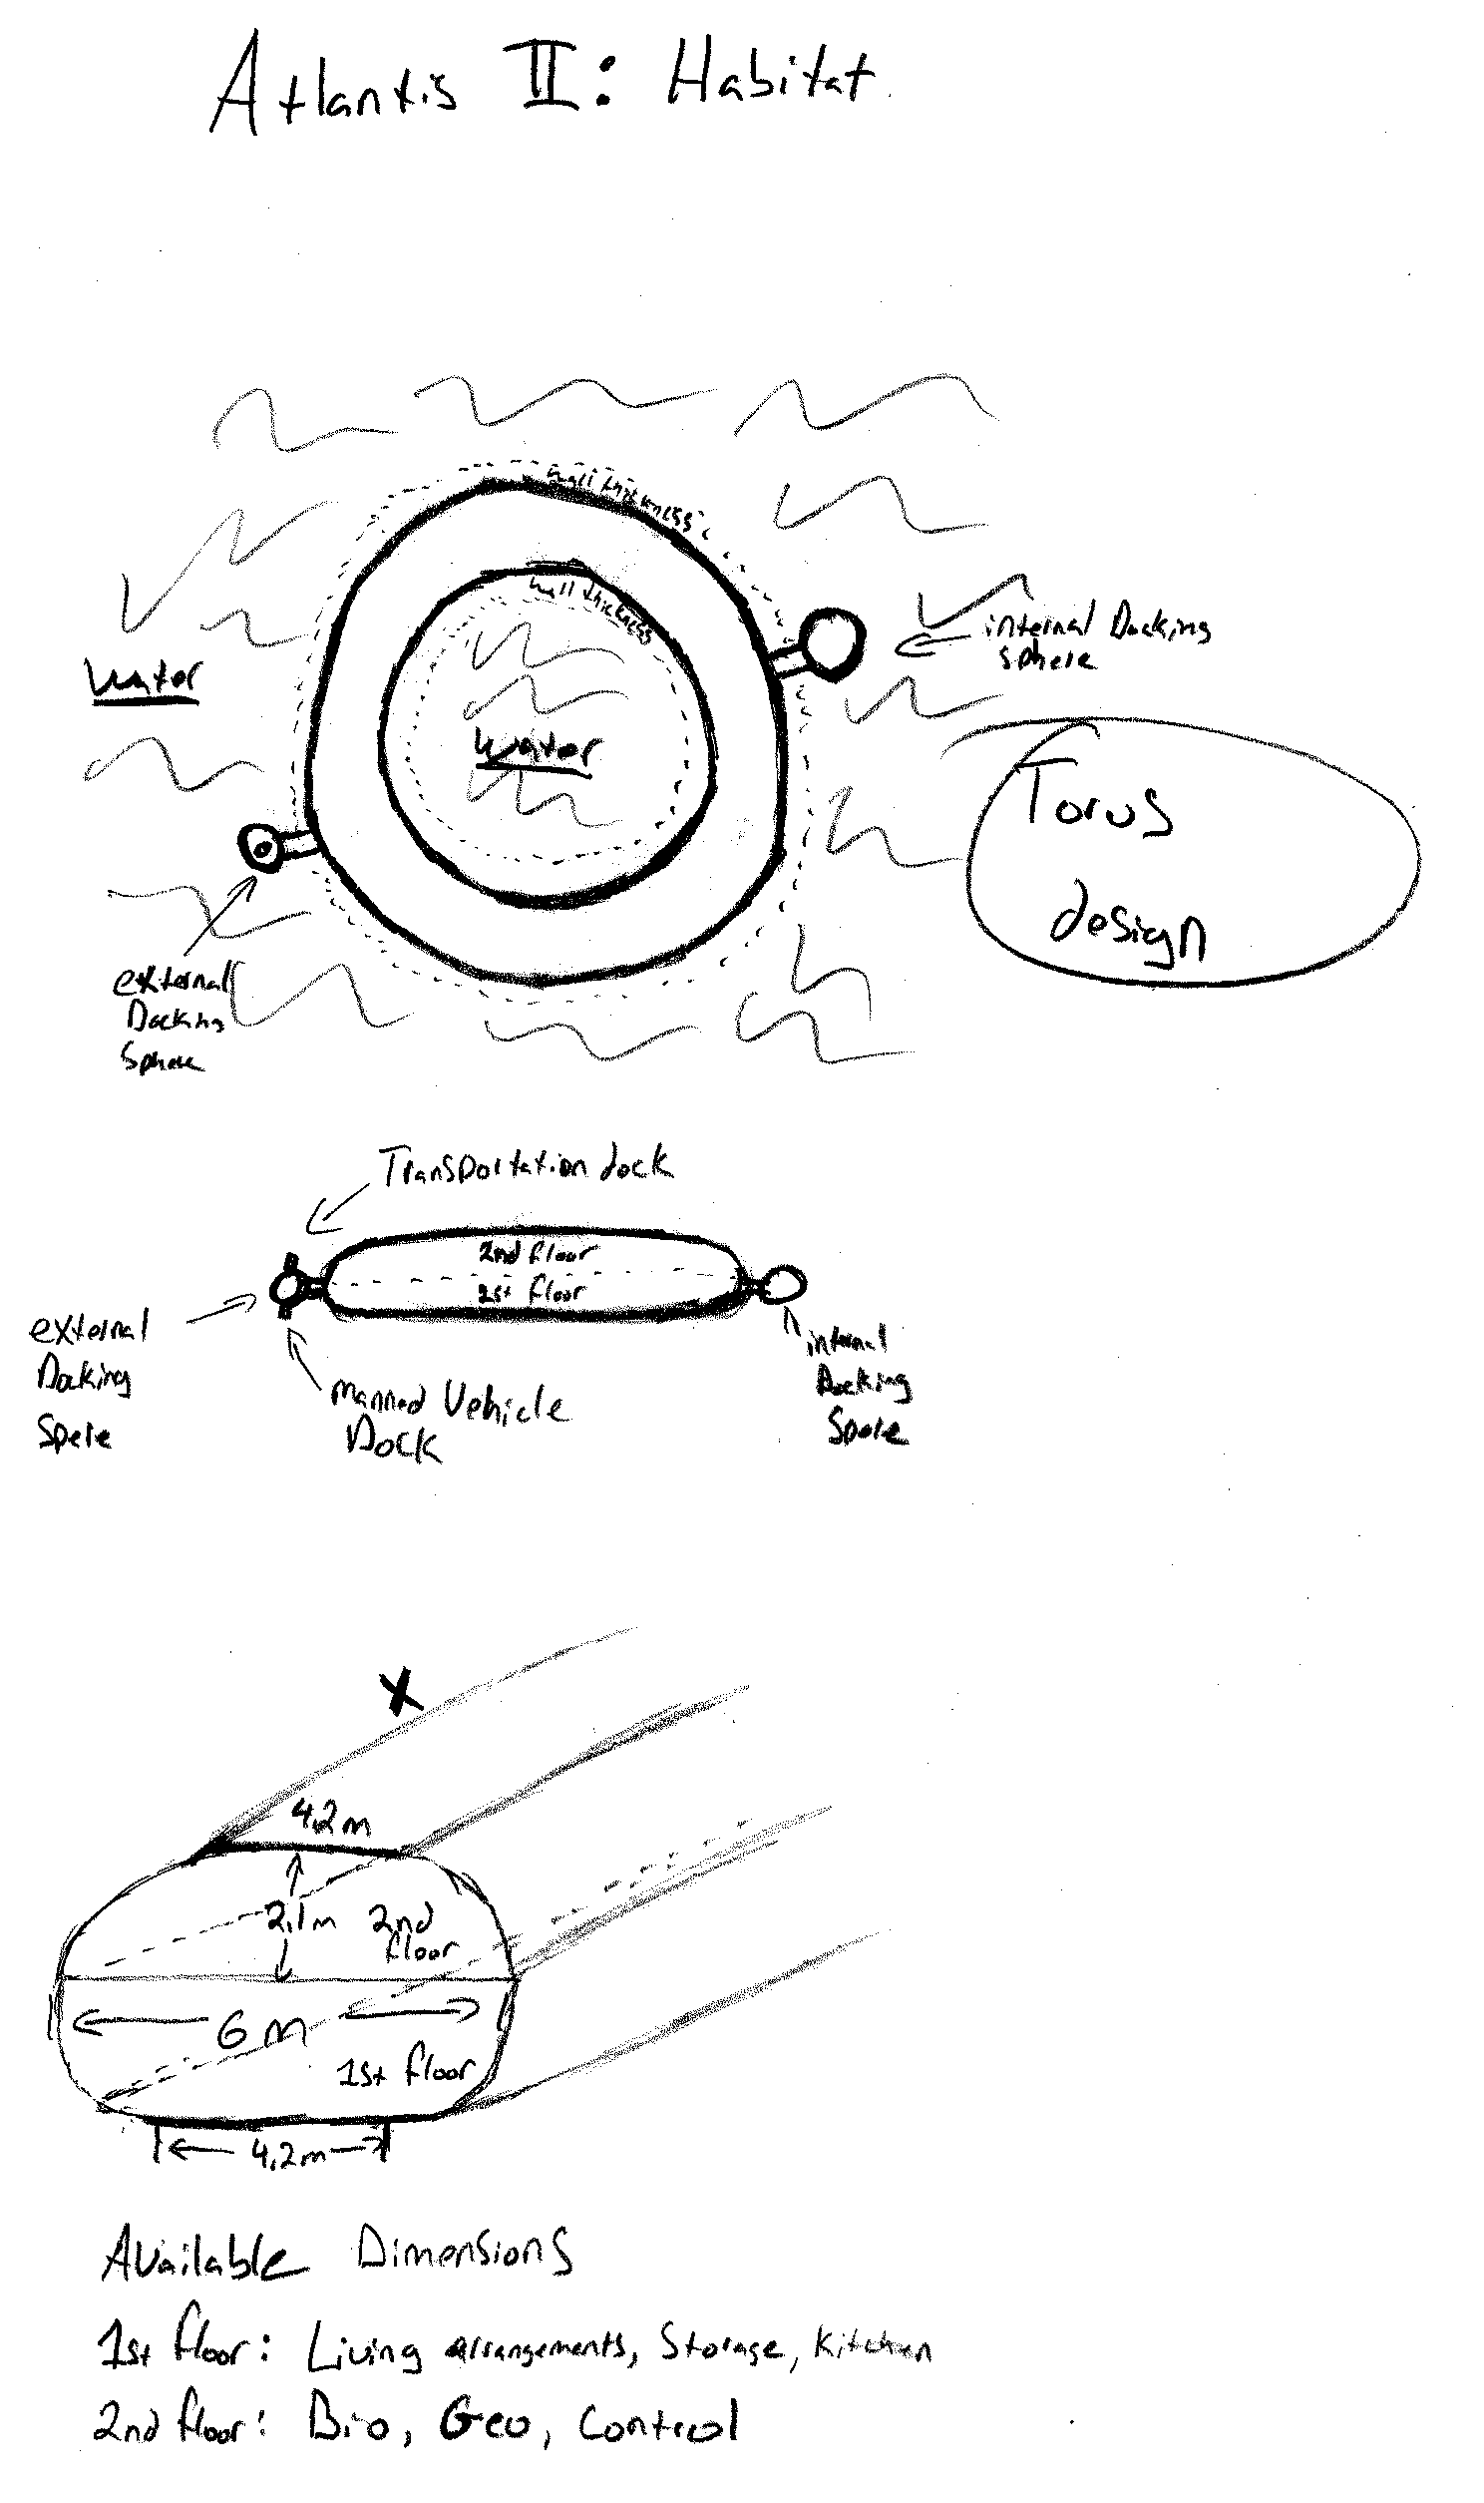 Atlantis II: Habitat
wall thickness
wall thickness
internal Docking
sphere
water
water
Torus
design
external
Docking
Sphere
Transportation dock
2nd floor
1st floor
external
Docking
Spere
internal
Docking
Spere
manned Vehicle
Dock
X
4.2m
2.1m 2nd
floor
6m
1st floor
4.2m
Available Dimensions
1st floor: Living arrangements, Storage, Kitchen
2nd floor: Bio, Geo, Control